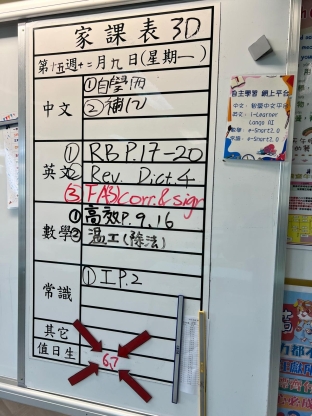 家課表 3D
第十五週 十二月九日(星期一)
中文
①自學冊
②補冊
英文
①RB P.17-20
②Rev. Dict.4
③FA3 corr. & sign
數學
①高效P.9,16
②温工(除法)
常識
①工P.2
其它
值日生
6,7
自主學習 網上平台
中文:智愛中文平台
英文:i-Learner
Longo AI
數學:e-Smart2.0
常識:e-Smart2.0